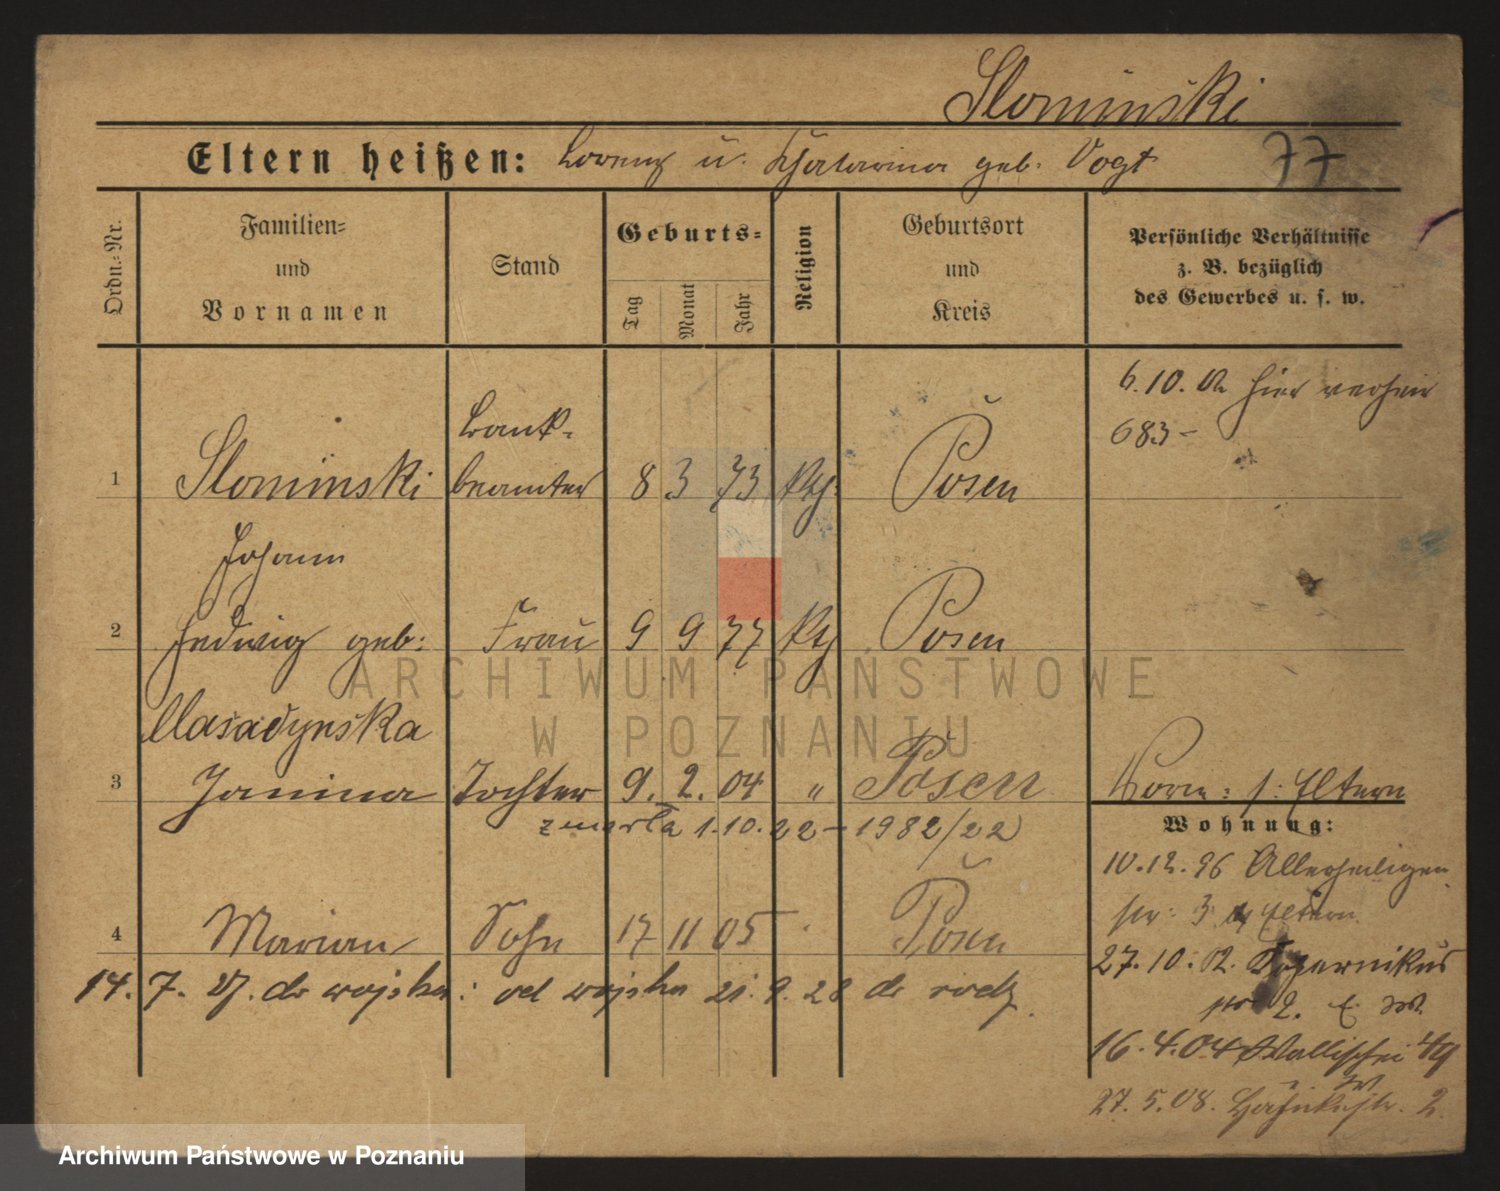 Slominski
Eltern heißen: Lorenz u. Katarina geb. Vogt
77
Ordn.-Nr.
Familien- und Vornamen
Stand
Geburts-
Tag
Monat
Jahr
Religion
Geburtsort und Kreis
Persönliche Verhältnisse
z. B. bezüglich
des Gewerbes u. s. w.
6.10. 02 hier verheir
683-
Bank-
1 Slominski beamter 8 3 73 kth. Posen
Johann
2 Hedwig geb: Frau 9 9 77 kth Posen
Masadynska
3 Janina Tochter 9. 2. 04 " Posen
zmarła 1.10.22 - 1982/22
Vorm: s: Eltern
Wohnung:
10.12.96 Allerheiligen
str: 3 Eltern
4 Marian Sohn 17 11 05 Posen
27.10.02. Kopernikus
14. 7. 27. do wojska: od wojska 21.9.28 do rodz.
str 2.
16.4.04 Wallischei 49
27.5.08. 2.
ARCHIWUM PAŃSTWOWE
W POZNANIU
Archiwum Państwowe w Poznaniu